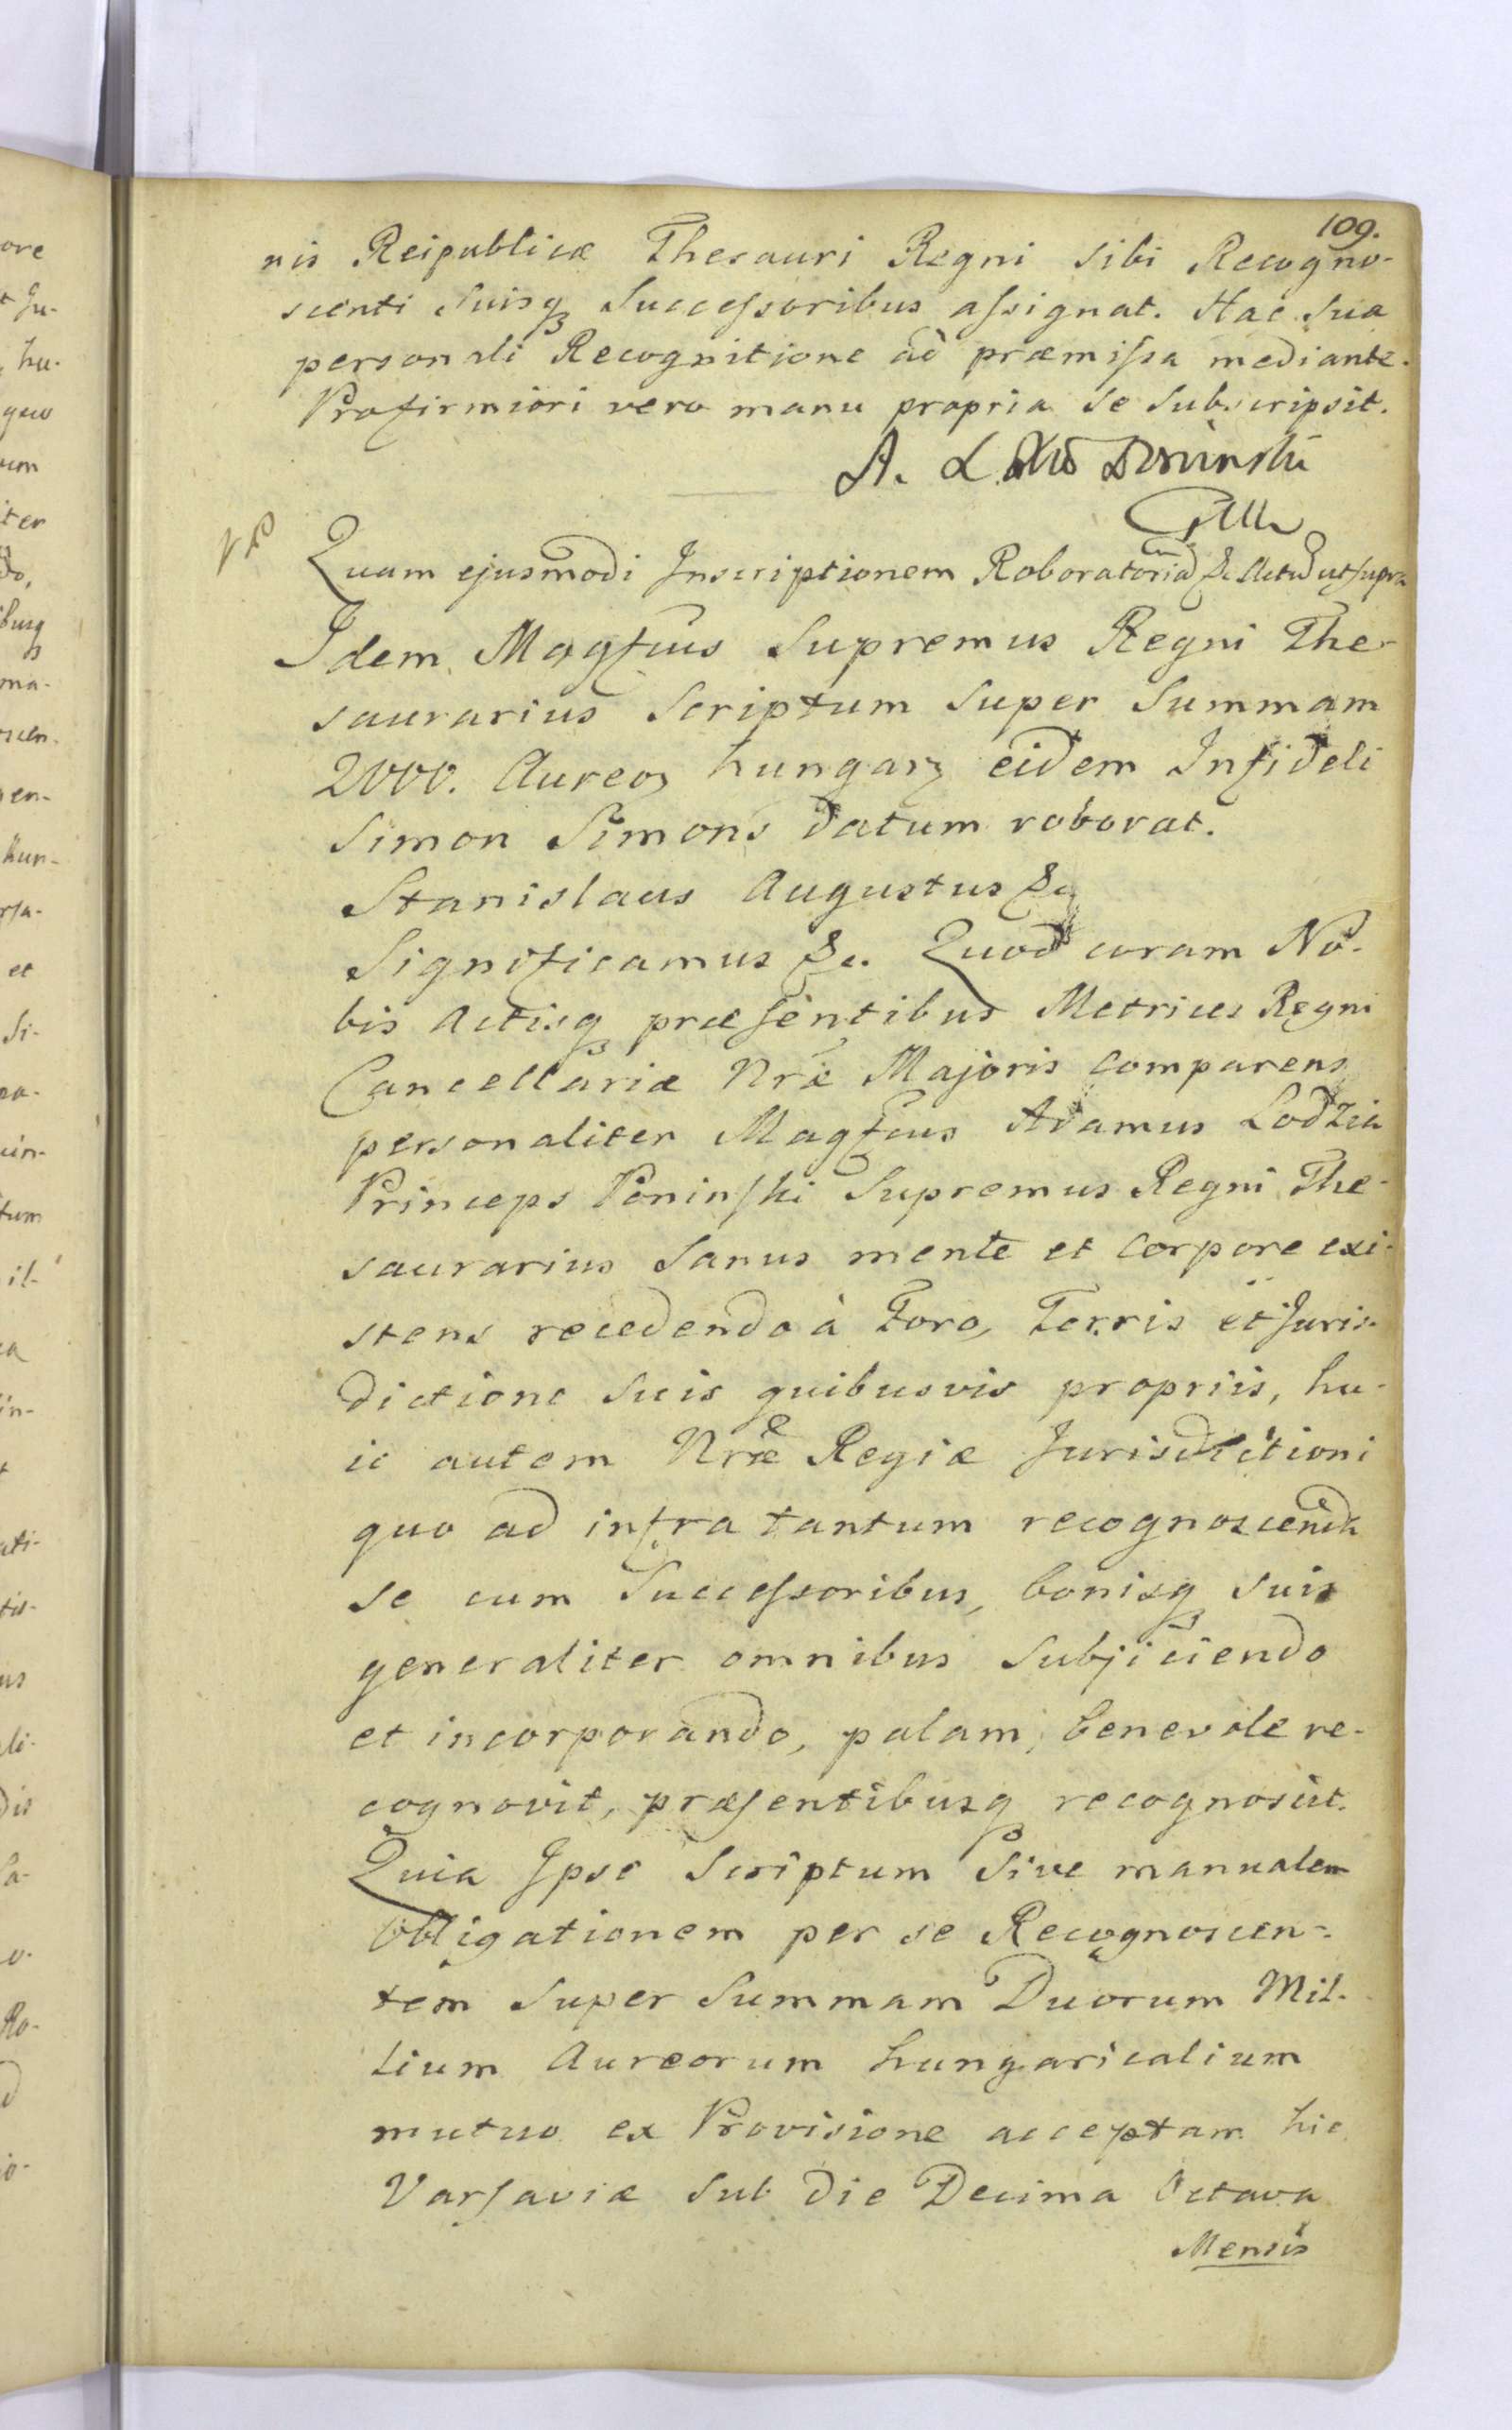 109.
nis Reipublicæ Thesauri Regni sibi Recogno-
scenti Suisq3 Successoribus assignat. Hac Sua
personali Recognitione ad præmissa mediante.
Profirmiori vero manu propria se Subscripsit.
A. L.
Quam ejusmodi Inscriptionem Roboratoriam &c Actu ut supra
Idem Magfcus Supremus Regni The-
saurarius Scriptum Super Summam
2000. Aureoz hungarz eidem Infideli
Simon Simons datum roborat.
Stanislaus Augustus &c
Significamus &c. Quod coram No-
bis Actisq3 præsentibus Metrices Regni
Cancellariæ Nræ Majoris Comparens
personaliter Magfcus Adamus Lodzia
Princeps Poninski Supremus Regni The-
saurarius Sanus mente et Corpore exi-
stens recedendo à Foro, Terris et Juris-
dictione Suis quibusvis propriis, hu-
ic autem Nræ Regiæ Jurisdictioni
quo ad infra tantum recognoscenda
se cum Successoribus, bonisq3 suis
generaliter omnibus Subjiciendo
et incorporando, palam, benevole re-
cognovit, præsentibusq3 recognoscit.
Quia Ipse Scriptum Sive manualem
Obligationem per se Recognoscen-
tem Super Summam Duorum Mil-
lium Aureorum hungaricalium
mutuo ex Provisione acceptam hic
Varsaviæ Sub die Decima Octava
Mensis
ore
hu-
quo
um
ter
do,
ma-
scen-
pen-
hun-
rsa-
et
Si-
tum
il-
in-
ati-
tis-
us
li-
dis
Sa-
o-
Ro-